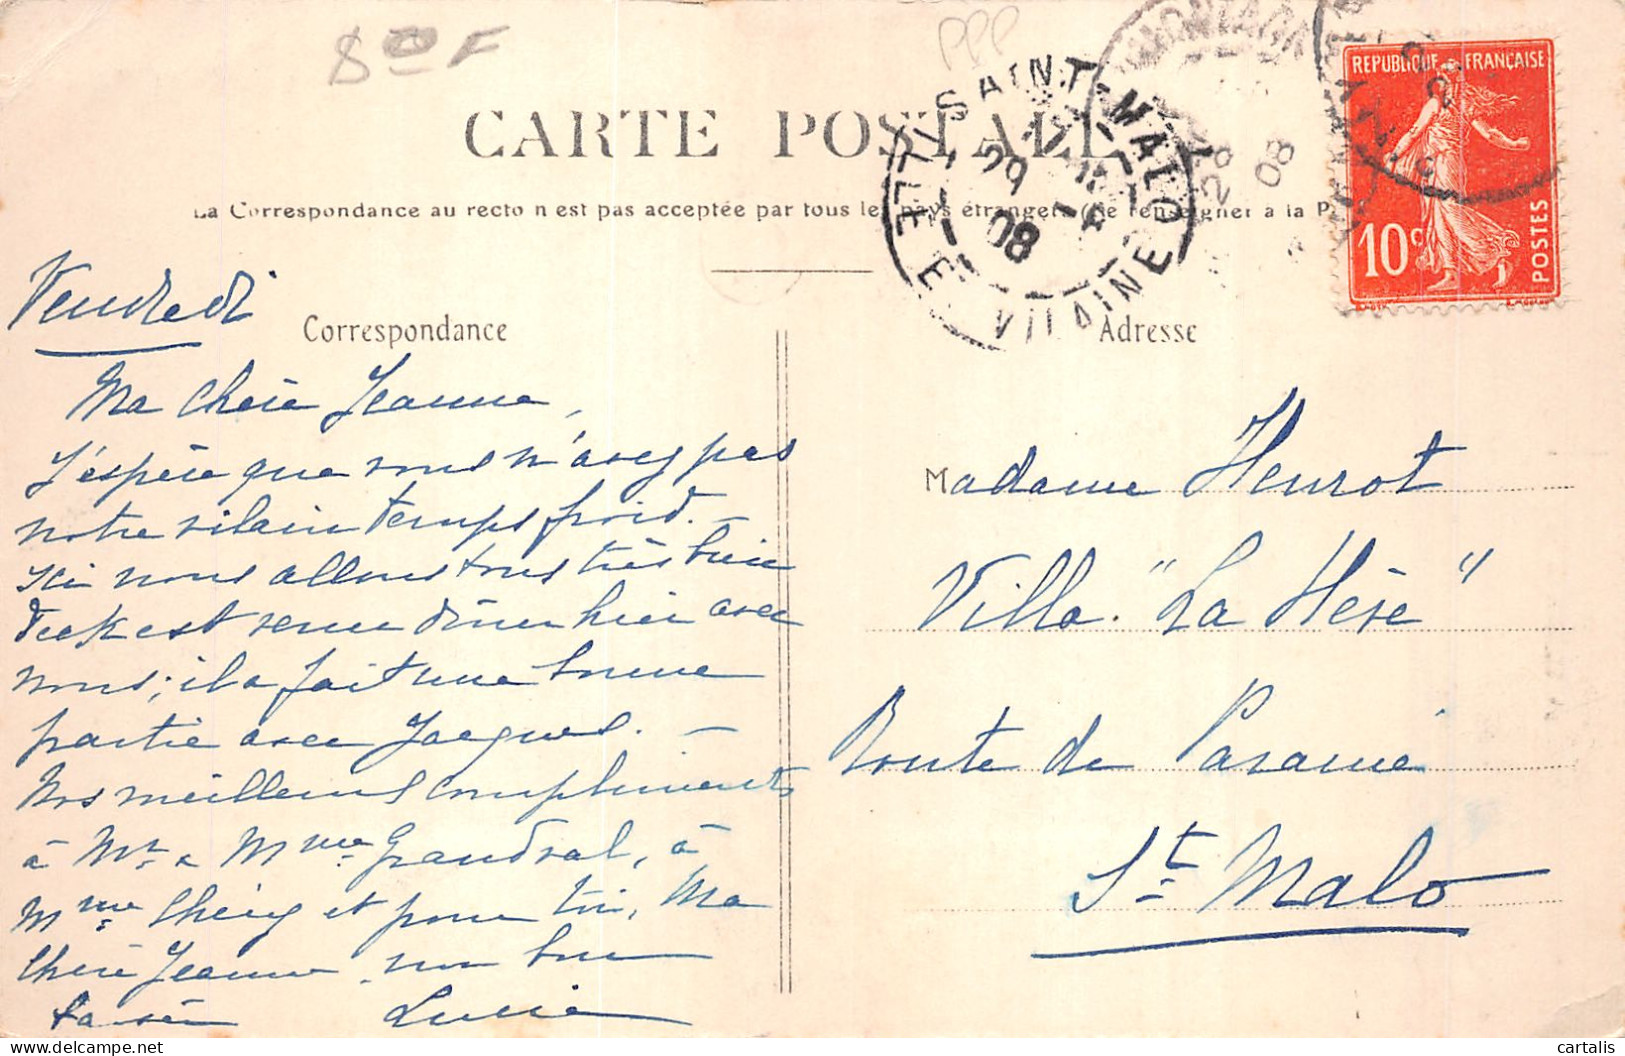 8⁰⁰ F
PPP
CARTE POSTALE
La Correspondance au recto n'est pas acceptée par tous les pays étrangers (Se renseigner à la P
REPUBLIQUE FRANÇAISE
10 c
POSTES
SAINT-MALO
ILLE-ET-VILAINE
29 -1
08
28
08
Correspondance
Adresse
Vendredi
Ma chère Jeanne,
J'espère que vous n'avez pas
notre vilain temps froid. –
Ici nous allons tous très bien
est venu dîner hier avec
nous; il a fait une bonne
partie avec Jacques. –
Nos meilleurs compliments
à Mr & Mme Grandval, à
Mme Chéry et pour toi, Ma
chère Jeanne, mon bon
Lucie
Madame Henrot
Villa "La Hève"
Route de Paramé
St Malo
cartalis